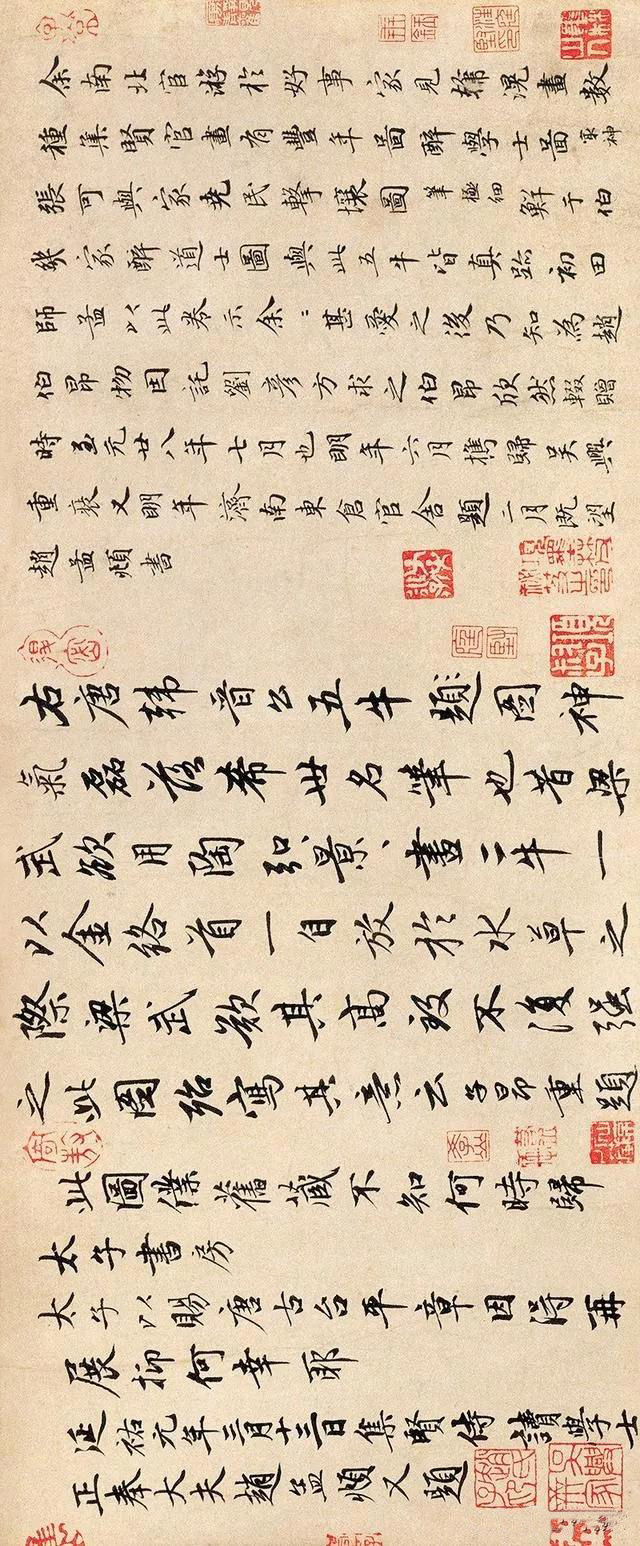 余南北宦游於好事家見韓滉畫數
種集賢官畫有豐年圖醉學士圖最神
張可與家堯民擊壤圖筆極細鮮于伯
幾家醉道士圖與此五牛皆真跡初田
師孟以此卷示余〻甚愛之後乃知為趙
伯昂物因託劉彥方求之伯昂欣然輟贈
時至元廿八年七月也明年六月攜歸吳興
重裝又明年濟南東倉官舍題二月既望
趙孟頫書
右唐韓晉公五牛題圖神
氣磊落希世名筆也昔梁
武欲用陶弘景〻畫二牛一
以金絡首一自放於水草之
際梁武歎其高致不復強
之此圖殆寫其意云子昂重題
此圖僕舊藏不知何時歸
太子書房
太子以賜唐古台平章因得再
展抑何幸耶
延祐元年三月十三日集賢侍讀學士
正奉大夫趙孟頫又題